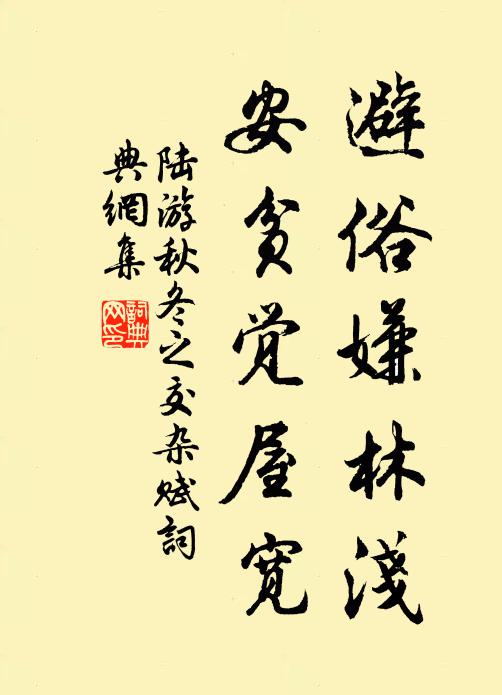 避俗嫌林淺
安贫觉屋宽
陆游秋冬之交杂赋詞
典網集
詞典
网印